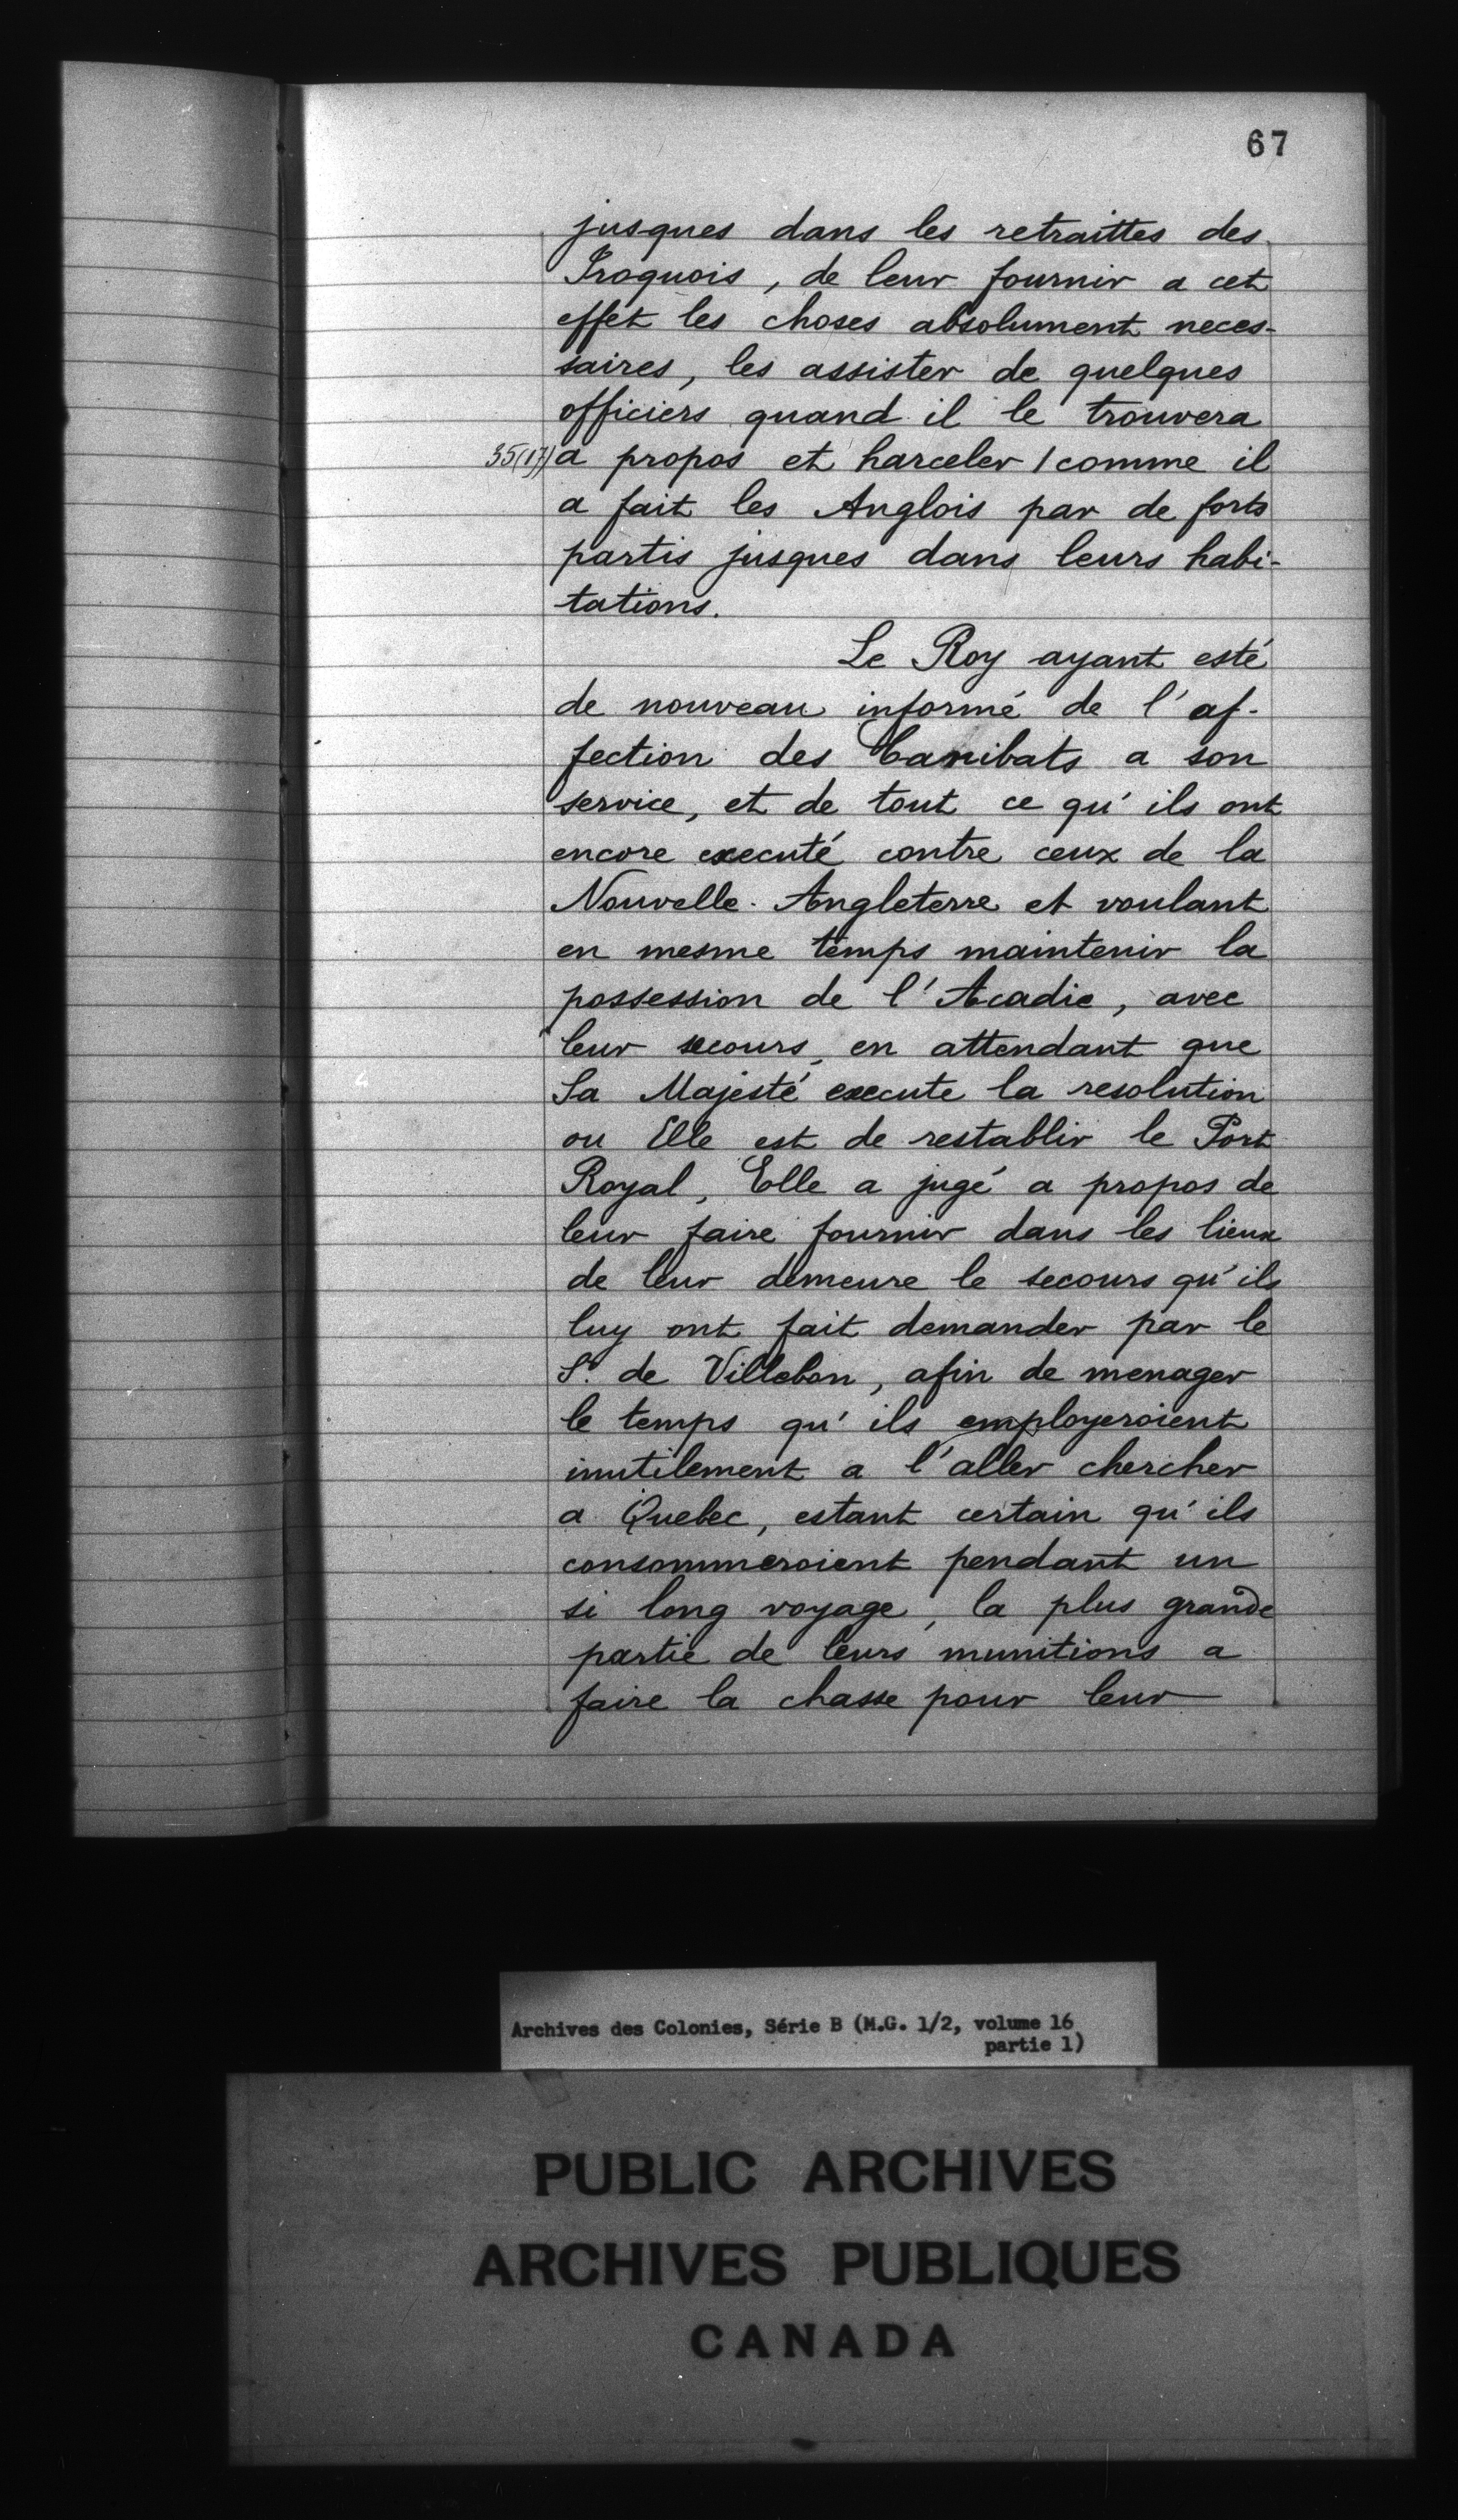 67
jusques dans les retraittes des
Iroquois, de leur fournir a cet
effet les choses absolument neces-
saires, les assister de quelques
officiers quand il le trouvera
35(17) a propos et harceler / comme il
a fait les Anglois par de forts
partis jusques dans leurs habi-
tations.
Le Roy ayant esté
de nouveau informé de l'af-
fection des Canibats a son
service, et de tout ce qu'ils ont
encore executé contre ceux de la
Nouvelle-Angleterre et voulant
en mesme temps maintenir la
possession de l'Acadie, avec
leur secours, en attendant que
Sa Majesté execute la resolution
ou Elle est de restablir le Port
Royal, Elle a jugé a propos de
leur faire fournir dans les lieux
de leur demeure le secours qu'ils
luy ont fait demander par le
Sr. de Villebon, afin de menager
le temps qu'ils employeroient
inutilement a l'aller chercher
a Quebec, estant certain qu'ils
consommeroient pendant un
si long voyage, la plus grande
partie de leurs munitions a
faire la chasse pour leur
Archives des Colonies, Série B (M.G. 1/2, volume 16
partie 1)
PUBLIC ARCHIVES
ARCHIVES PUBLIQUES
CANADA